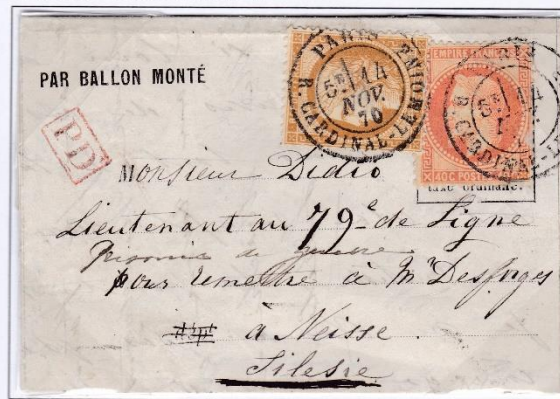 PAR BALLON MONTÉ
PARIS
6E 14
NOV.
70
R. CARDINAL-LEM
EMPIRE FRANC
40C POSTES
R. CARDINAL-L
PD
Monsieur Didio
Lieutenant au 79e de Ligne
Prisonnier de guerre
pour remettre à Mr Desforges
à Neisse
Silesie